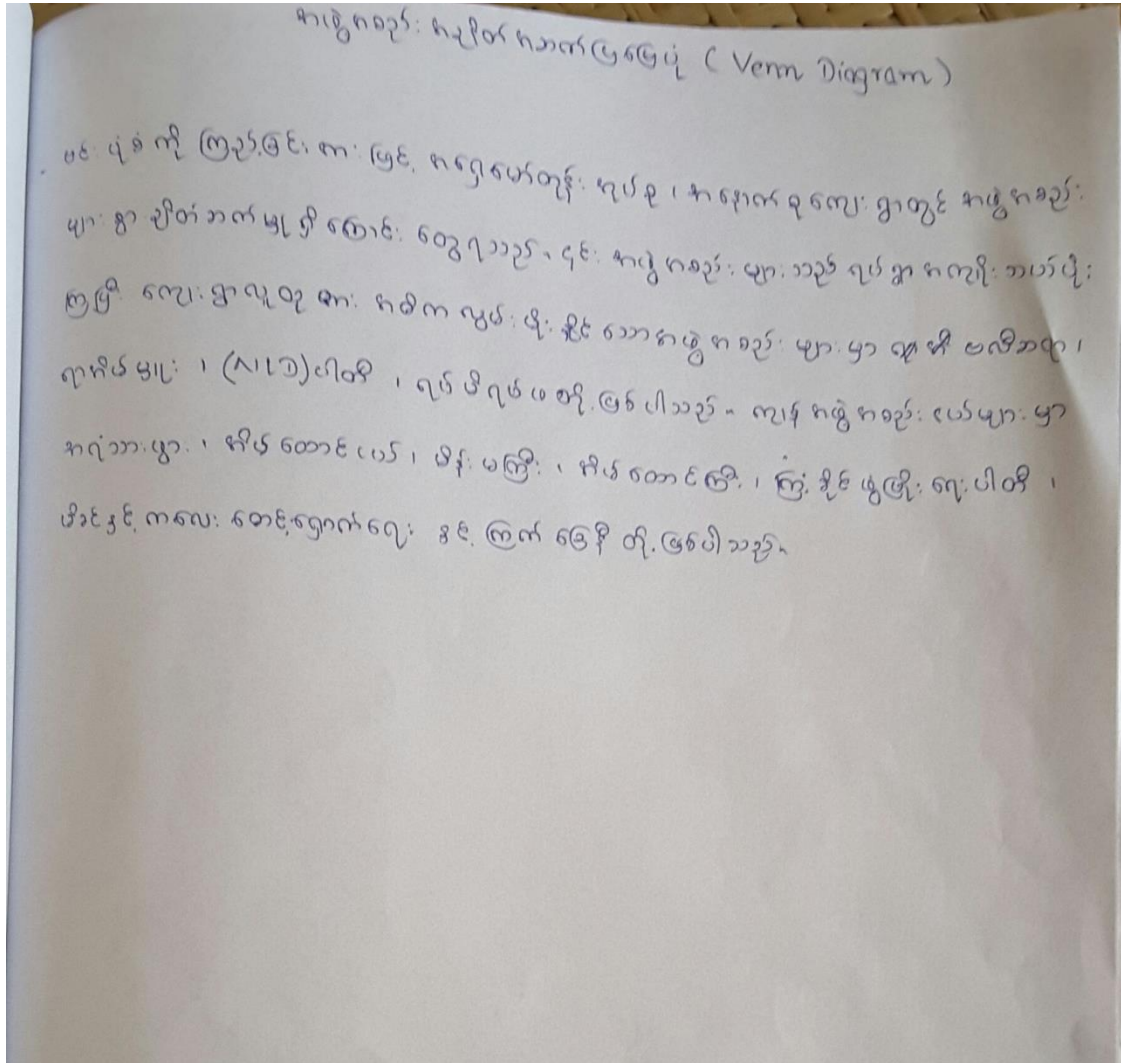 အဖွဲ့အစည်း အချိတ်အဆက်ပြမြေပုံ ( Venn Diagram )
ဗင်းပုံစံကို ကြည့်ခြင်းအားဖြင့် အရှေ့ တုန်း အုပ်စု ၊ အနောက်စုကျေးရွာတွင် အဖွဲ့အစည်း
များစွာ ချိတ်ဆက်မှုရှိကြောင်း တွေ့ရသည်။ ၎င်းအဖွဲ့အစည်းများသည် ရပ်ရွာအကျိုး သယ်ပိုး
ကြပြီး ကျေးရွာလူထုအား အဓိကလွှမ်းမိုးနိုင်သောအဖွဲ့အစည်းများမှာ ဗလီဆရာ၊
ရာအိမ်မှူး ၊ (NLD)ပါတီ ၊ ရပ်မိရပ်ဖတို့ဖြစ်ပါသည်။ ကျန်အဖွဲ့အစည်းငယ်များမှာ
အရံသားဖွား ၊ အိမ်ထောင်ငယ် ၊ မိန်းမကြီး ၊ အိမ်ထောင်ကြီး ၊ ကြံ့ခိုင်ဖွံ့ဖြိုးရေးပါတီ ၊
မိခင်နှင့်ကလေး စောင့်ရှောက်ရေး နှင့် ကြက်ခြေနီ တို့ဖြစ်ပါသည်။